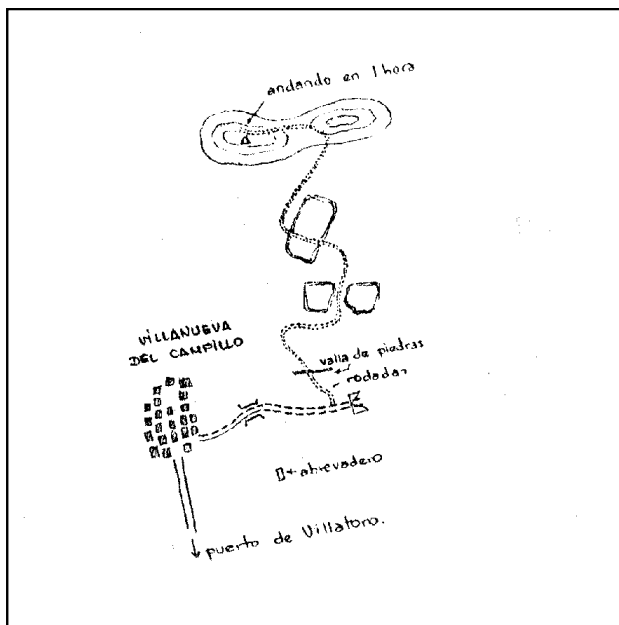 andando en 1 hora
VILLANUEVA
DEL CAMPILLO
valla de piedras
rodadas
abrevadero
puerto de Villatoro.